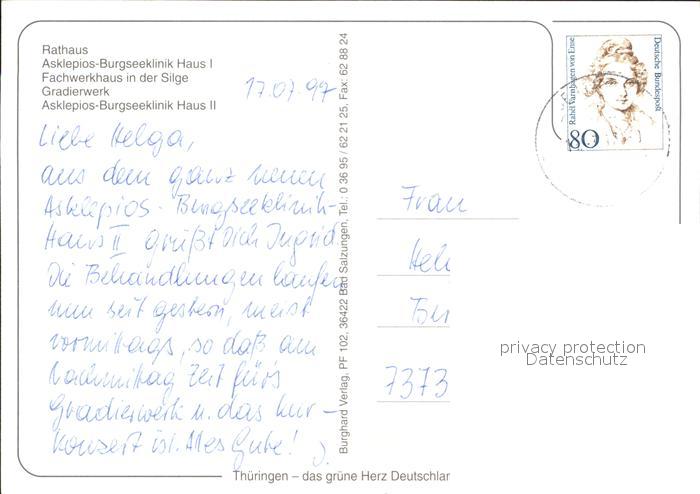 Rathaus
Asklepios-Burgseeklinik Haus I
Fachwerkhaus in der Silge
Gradierwerk
Asklepios-Burgseeklinik Haus II
17.07.97
Liebe Helga,
aus dem ganz neuen
Asklepios-Burgseeklinik-
Haus II grüßt Dich Ingrid.
Die Behandlungen laufen
nun seit gestern, meist
vormittags, so daß am
Nachmittag Zeit für's
Gradierwerk u. das Kur-
konzert ist. Alles Gute!
J.
Burghard Verlag, PF 102, 36422 Bad Salzungen, Tel.: 0 36 95 / 62 21 25, Fax: 62 88 24
Rahel Varnhagen von Ense
Deutsche Bundespost
80
Frau
Hel
7373
privacy protection
Datenschutz
Thüringen – das grüne Herz Deutschlan